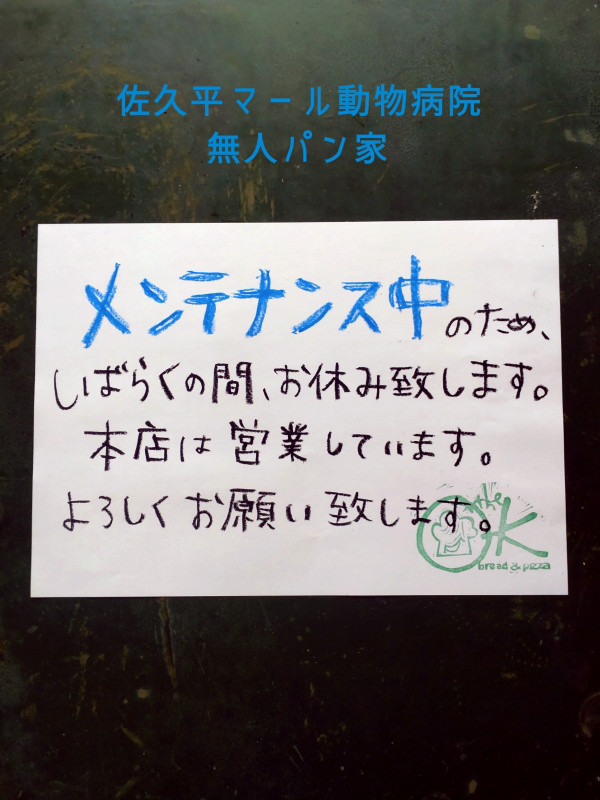 佐久平マール動物病院
無人パン家
メンテナンス中のため、
しばらくの間、お休み致します。
本店は営業しています。
よろしくお願い致します。
the
OK
bread & pizza